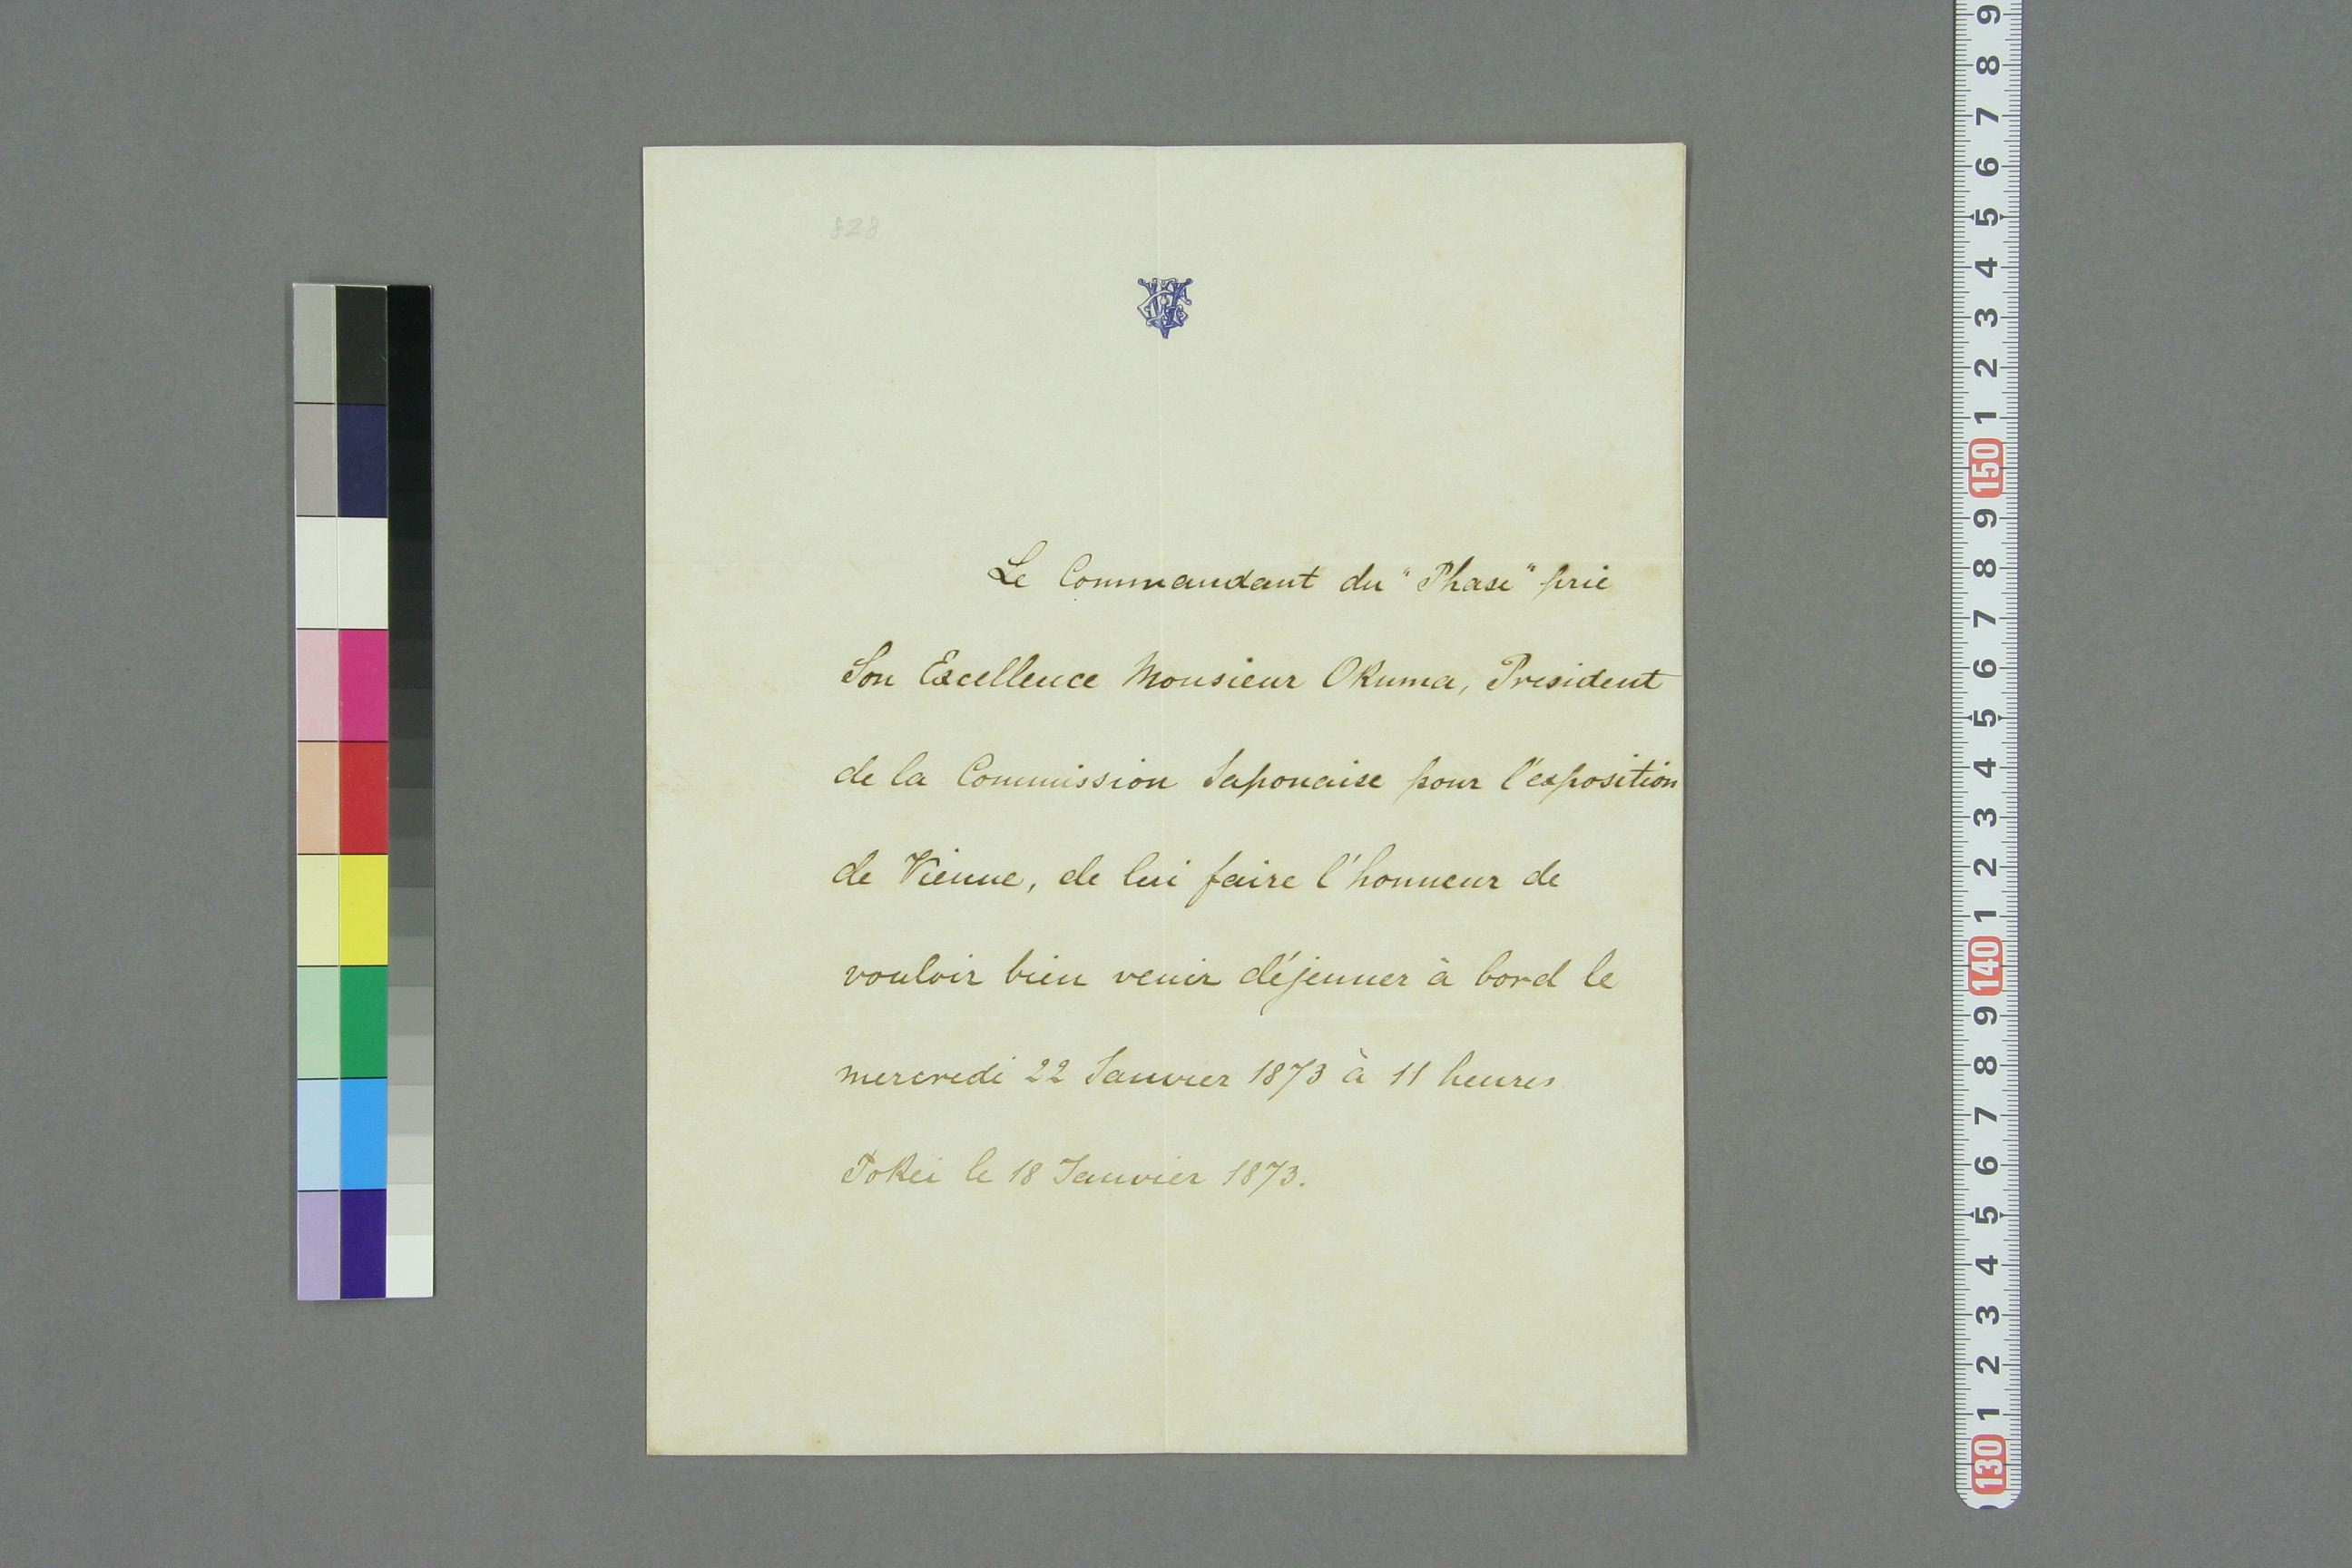 828
Le Commandant du "Phase" prie
Son Excellence Monsieur Okuma, President
de la Commission Japonaise pour l'exposition
de Vienne, de lui faire l'honneur de
vouloir bien venir déjeuner à bord le
mercredi 22 Janvier 1873 à 11 heures
Tokei le 18 Janvier 1873.
9
8
7
6
5
4
3
2
1
150
9
8
7
6
5
4
3
2
1
140
9
8
7
6
5
4
3
2
1
130